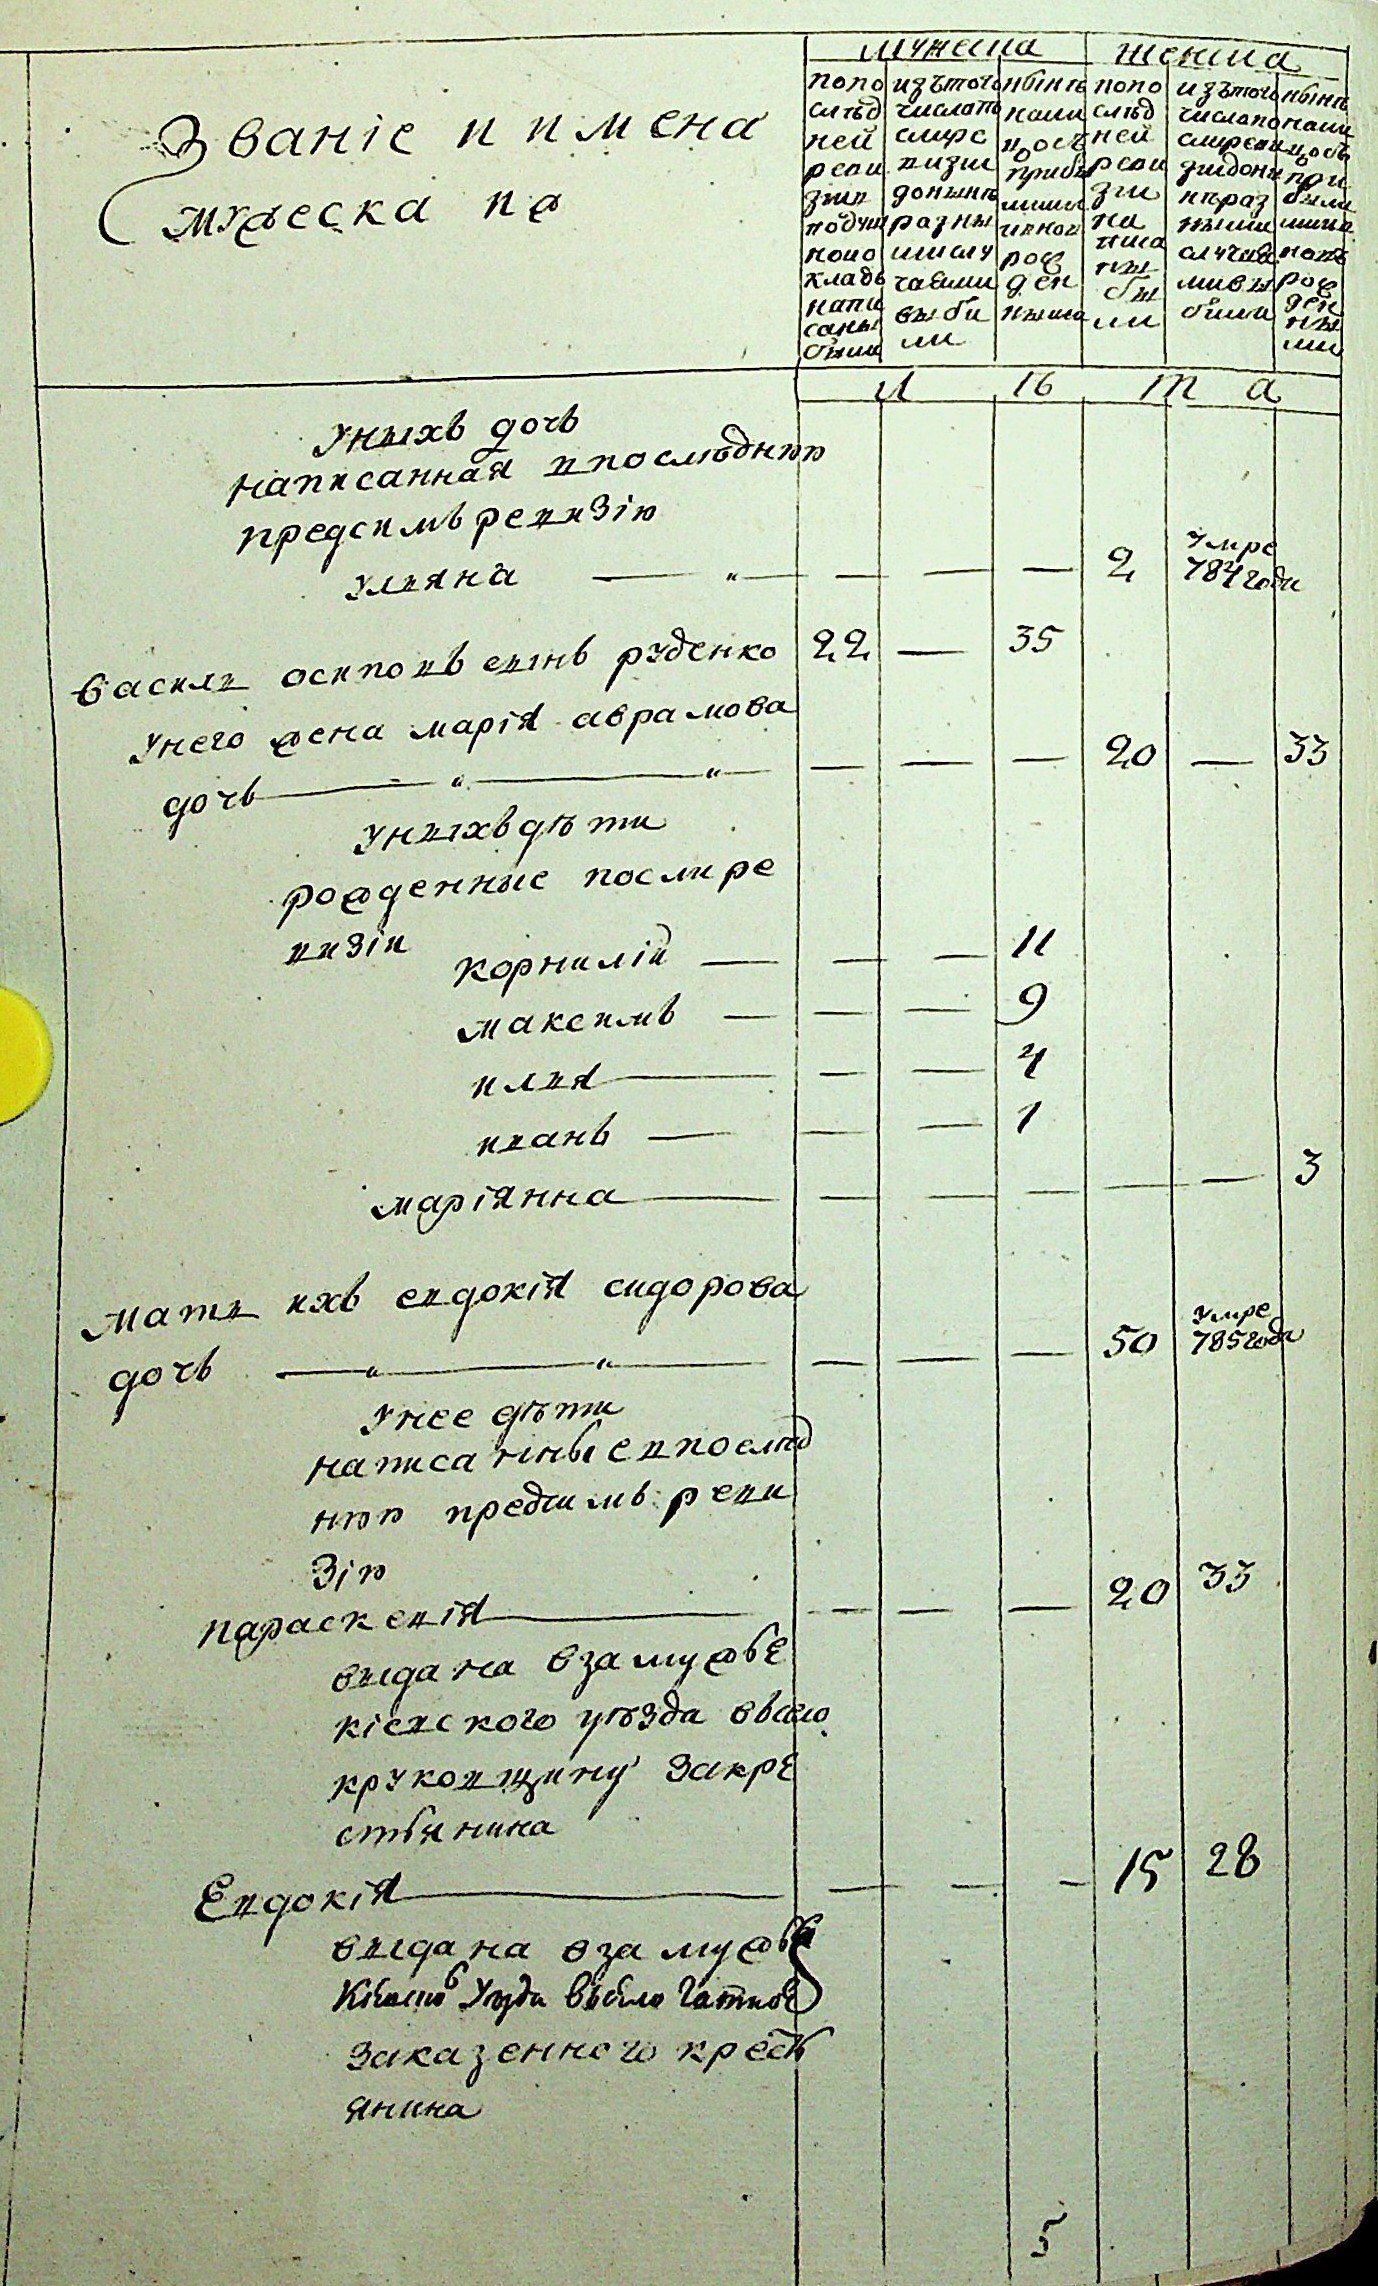 Званіе и имена
мужеска по
мужеска
женска
попо
слѣд
ней
реви
зіи
подуш
ному
кладъ
напи
саны
были
изътого
числапо
слире
визіи
донынѣ
разны
мислу
чаями
выбы
ли
нынѣ
нали
цосъ
прибы
лыми
иново
рож
ден
ными
попо
слѣд
ней
реви
зіи
на
писа
ны
бы
ли
изътого
числапо
слиреви
зіидоны
нѣраз
ными
случая
мивы
были
нынѣ
нали
цосъ
при
былы
мии
новъ
рож
ден
ны
ми
Л Ѣ Т А
унихъ дочь
написанная впослѣднюю
предсимъ ревизію
ульяна — 2 умре
784 года
василь осиповъ сынъ руденко 22 — 35
унего жена марія аврамова
дочь — 20 — 33
унихъ дѣти
рожденные послире
визіи
корнилій — 11
максимъ — 9
илья — 4
иванъ — 1
маріянна — 3
мать ихъ евдокія сидорова
дочь — 50 умре
785 года
унее дѣти
написанные впослѣд
нюю предсимъ реви
зію
параскевія — 20 33
выдана взамужье
кіевского уѣзда въсело
круковщину закре
стьянина
Евдокія — 15 28
выдана взамужье
Кіевскѡ уезда въсело Гатное
заказенного кресть
янина
5